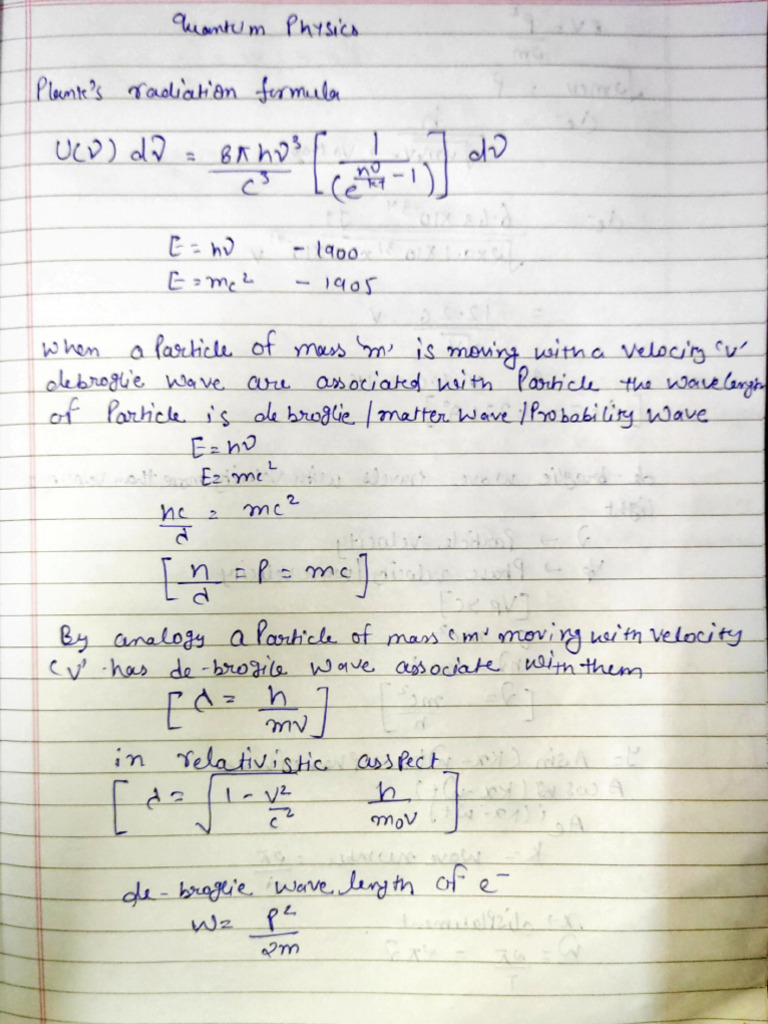 Quantum Physics
Plank's radiation formula
U(ν) dν = 8πhν³/c³ [1/(e^(hν/kT) -1)] dν
E = hν - 1900
E = mc² - 1905
When a Particle of mass 'm' is moving with a velocity 'v'
debroglie wave are associated with Particle the wavelength
of Particle is debroglie /matter wave /Probability wave
E = hν
E = mc²
hc/λ = mc²
[h/λ = P = mc]
By analogy a Particle of mass 'm' moving with velocity
'v' has de-brogile wave associate with them
[λ = h/mv]
in relativistic asspect
[λ = √(1 - v²/c²) h/m₀v]
de-broglie wave length of e⁻
W = P²/2m